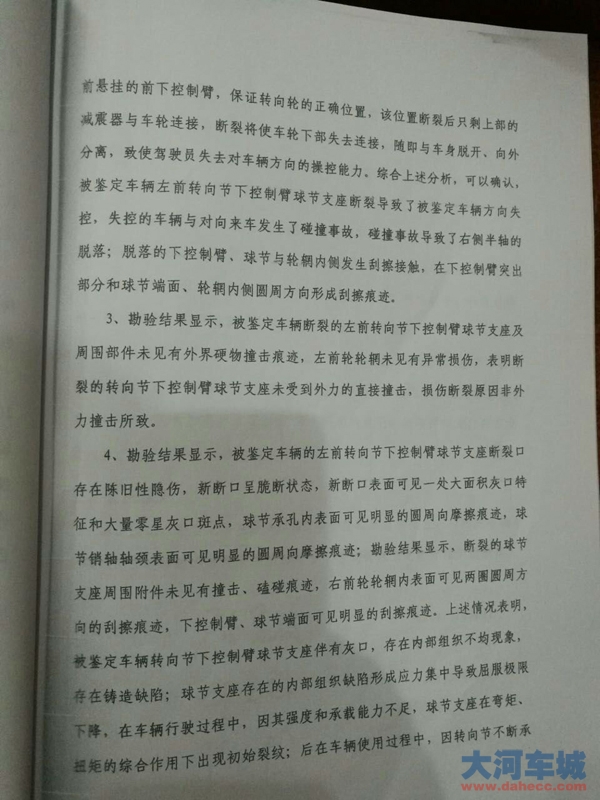 前悬挂的前下控制臂，保证转向轮的正确位置，该位置断裂后只剩上部的
减震器与车轮连接，断裂将使车轮下部失去连接，随即与车身脱开、向外
分离，致使驾驶员失去对车辆方向的操控能力。综合上述分析，可以确认，
被鉴定车辆左前转向节下控制臂球节支座断裂导致了被鉴定车辆方向失
控，失控的车辆与对向来车发生了碰撞事故，碰撞事故导致了右侧半轴的
脱落；脱落的下控制臂、球节与轮辋内侧发生刮擦接触，在下控制臂突出
部分和球节端面、轮辋内侧圆周方向形成刮擦痕迹。
3、勘验结果显示，被鉴定车辆断裂的左前转向节下控制臂球节支座及
周围部件未见有外界硬物撞击痕迹，左前轮轮辋未见有异常损伤，表明断
裂的转向节下控制臂球节支座未受到外力的直接撞击，损伤断裂原因非外
力撞击所致。
4、勘验结果显示，被鉴定车辆的左前转向节下控制臂球节支座断裂口
存在陈旧性隐伤，新断口呈脆断状态，新断口表面可见一处大面积灰口特
征和大量零星灰口斑点，球节承孔内表面可见明显的圆周向摩擦痕迹，球
节销轴轴颈表面可见明显的圆周向摩擦痕迹；勘验结果显示，断裂的球节
支座周围附件未见有撞击、磕碰痕迹，右前轮轮辋内表面可见两圈圆周方
向的刮擦痕迹，下控制臂、球节端面可见明显的刮擦痕迹。上述情况表明，
被鉴定车辆转向节下控制臂球节支座伴有灰口，存在内部组织不均现象，
存在铸造缺陷；球节支座存在的内部组织缺陷形成应力集中导致屈服极限
下降，在车辆行驶过程中，因其强度和承载能力不足，球节支座在弯矩、
扭矩的综合作用下出现初始裂纹；后在车辆使用过程中，因转向节不断承
大河车城
www.dahecc.com